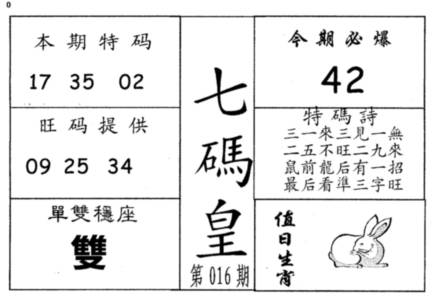 0
本期特码
17 35 02
旺码提供
09 25 34
單雙穩座
雙
七碼皇
第016期
今期必爆
42
特碼詩
三一來三見一無
二五不旺二九來
鼠前龍后有一招
最后看準三字旺
值日生肖